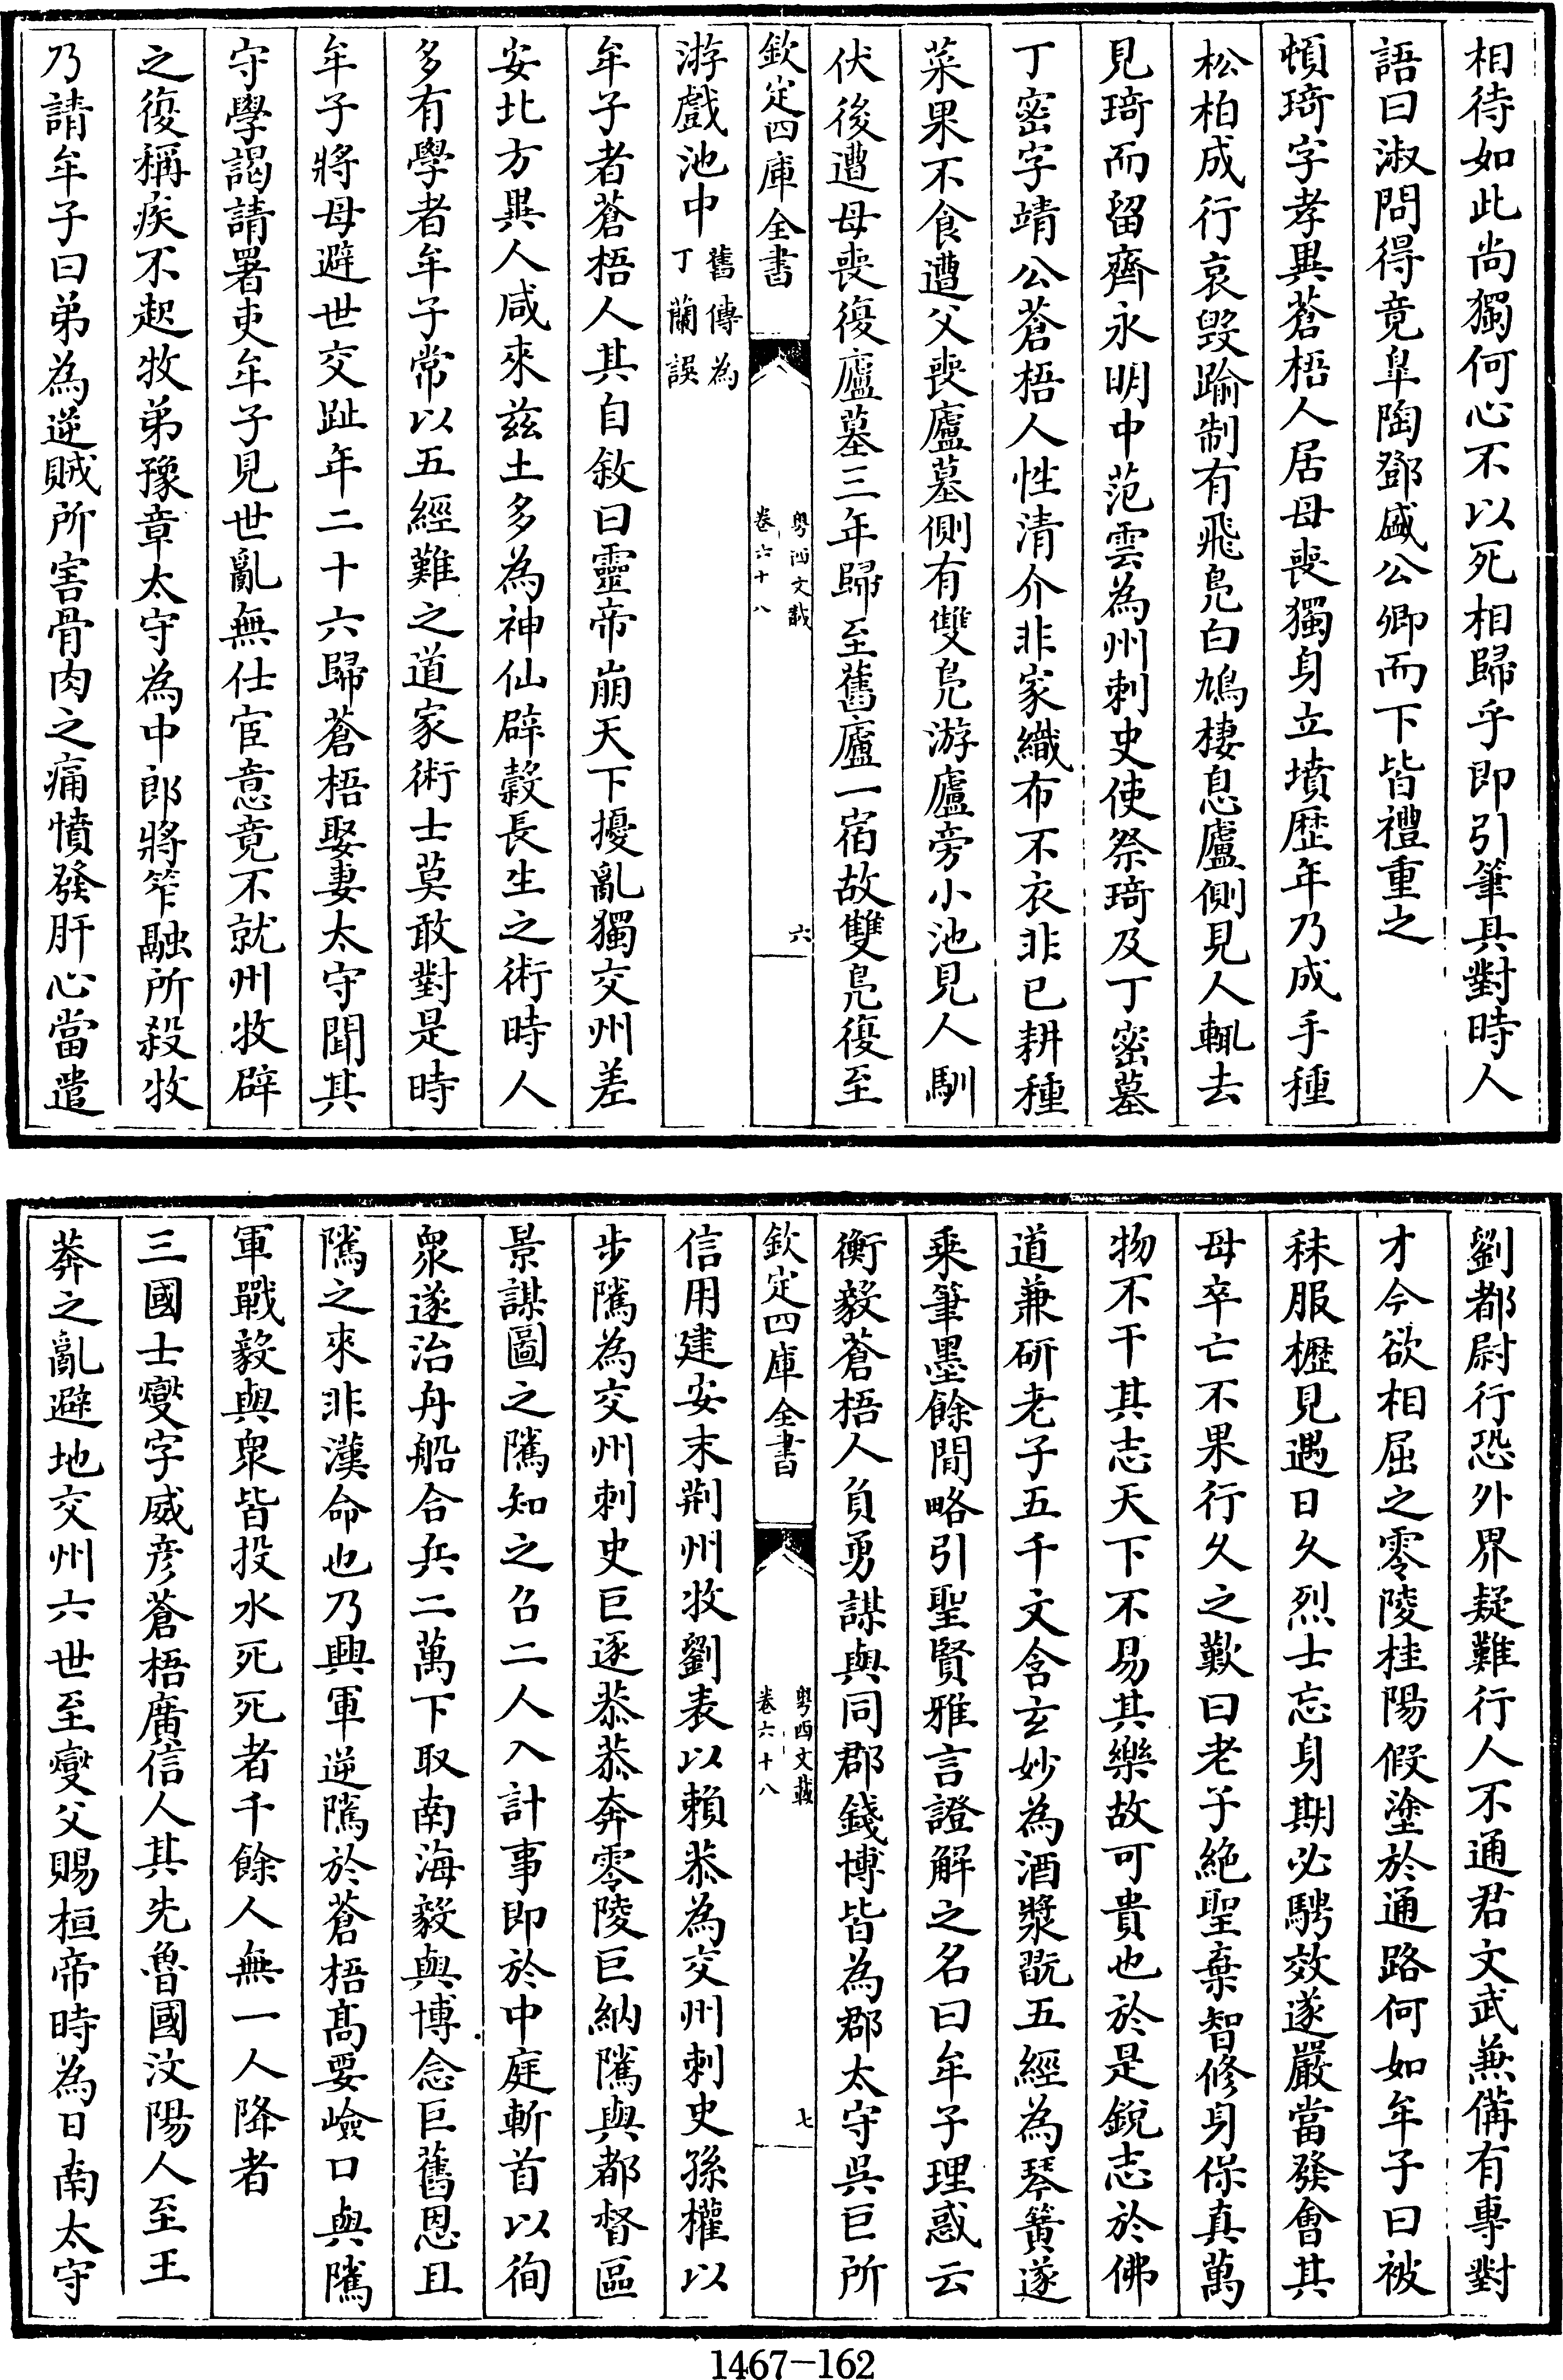 相待如此尚獨何心不以死相歸乎即引筆具對時人
語曰淑問得竟臯陶鄧盛公卿而下皆禮重之
頓琦字孝異蒼梧人居母喪獨身立墳歴年乃成手種
松柏成行哀毁踰制有飛鳬白鳩棲息廬側見人輒去
見琦而留齊永明中范雲為州刺史使祭琦及丁密墓
丁密字靖公蒼梧人性清介非家織布不衣非已耕種
菜果不食遭父喪廬墓側有雙鳬游廬旁小池見人馴
伏後遭母喪復廬墓三年歸至舊廬一宿故雙鳬復至
欽定四庫全書
粤西文載
卷六十八
六
游戲池中
舊傳為
丁蘭誤
牟子者蒼梧人其自敘曰靈帝崩天下擾亂獨交州差
安北方異人咸來兹土多為神仙辟穀長生之術時人
多有學者牟子常以五經難之道家術士莫敢對是時
牟子將母避世交趾年二十六歸蒼梧娶妻太守聞其
守學謁請署吏牟子見世亂無仕宦意竟不就州牧辟
之復稱疾不起牧弟豫章太守為中郎將笮融所殺牧
乃請牟子曰弟為逆賊所害骨肉之痛憤發肝心當遣
劉都尉行恐外界疑難行人不通君文武兼備有專對
才今欲相屈之零陵桂陽假塗於通路何如牟子曰被
秣服櫪見遇日久烈士忘身期必騁效遂嚴當發會其
母卒亡不果行久之歎曰老子絶聖棄智修身保真萬
物不干其志天下不易其樂故可貴也於是銳志於佛
道兼研老子五千文含玄妙為酒漿翫五經為琴簧遂
乘筆墨餘間略引聖賢雅言證解之名曰牟子理惑云
衡毅蒼梧人負勇謀與同郡錢博皆為郡太守吳巨所
欽定四庫全書
粤西文載
卷六十八
七
信用建安末荆州牧劉表以賴恭為交州刺史孫權以
步隲為交州刺史巨逐恭恭奔零陵巨納隲與都督區
景謀圖之隲知之召二人入計事即於中庭斬首以徇
衆遂治舟船合兵二萬下取南海毅與博念巨舊恩且
隲之來非漢命也乃興軍逆隲於蒼梧髙要嶮口與隲
軍戰毅與衆皆投水死死者千餘人無一人降者
三國士燮字威彦蒼梧廣信人其先魯國汶陽人至王
莽之亂避地交州六世至燮父賜桓帝時為日南太守
1467-162